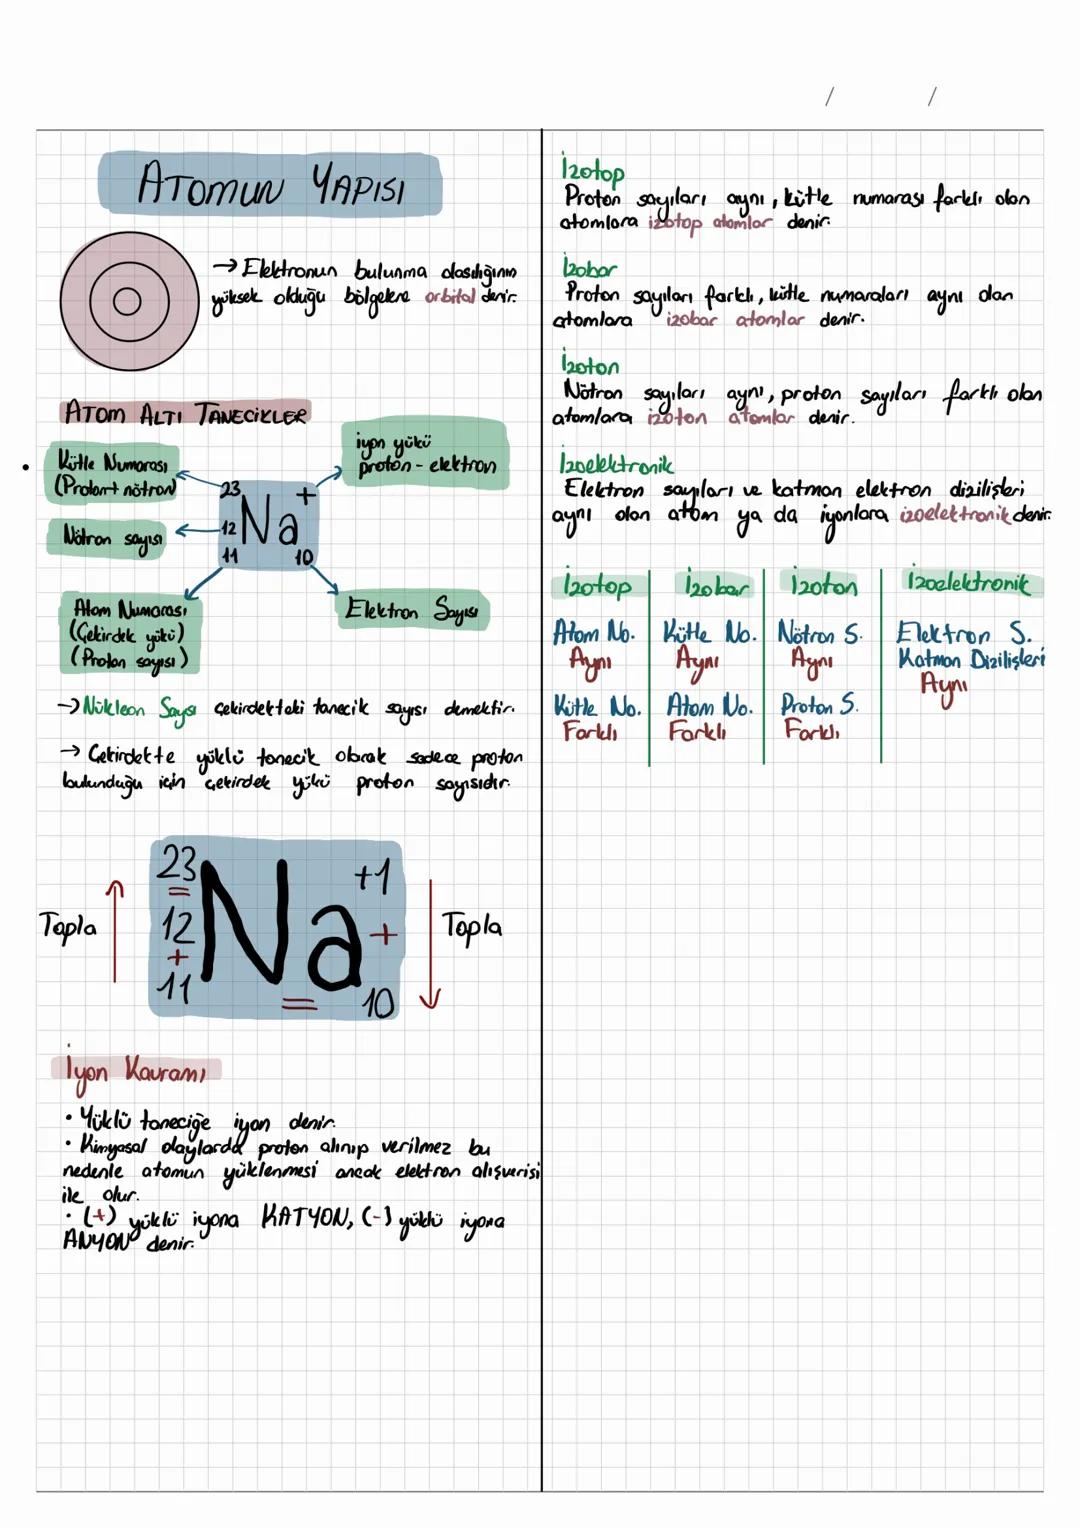 / /
ATOMUN YAPISI
→ Elektronun bulunma olasılığının
yüksek olduğu bölgelere orbital denir.
ATOM ALTI TANECİKLER
Kütle Numarası
(Proton+nötron)
iyon yükü
proton - elektron
23 +
Na
12
11 10
Nötron sayısı
Atom Numarası
(Çekirdek yükü)
(Proton sayısı)
Elektron Sayısı
→ Nükleon Sayısı çekirdekteki tanecik sayısı demektir.
→ Çekirdekte yüklü tanecik olarak sadece proton
bulunduğu için çekirdek yükü proton sayısıdır.
23 +1
=
Topla 12 Na + Topla
+
11 = 10
İyon Kavramı
• Yüklü taneciğe iyon denir.
• Kimyasal olaylarda proton alınıp verilmez bu
nedenle atomun yüklenmesi ancak elektron alışverişi
ile olur.
• (+) yüklü iyona KATYON, (-) yüklü iyona
ANYON denir.
İzotop
Proton sayıları aynı, kütle numarası farklı olan
atomlara izotop atomlar denir.
İzobar
Proton sayıları farklı, kütle numaraları aynı olan
atomlara izobar atomlar denir.
İzoton
Nötron sayıları aynı, proton sayıları farklı olan
atomlara izoton atomlar denir.
İzoelektronik
Elektron sayıları ve katman elektron dizilişleri
aynı olan atom ya da iyonlara izoelektronik denir.
İzotop İzobar İzoton İzoelektronik
Atom No. Kütle No. Nötron S. Elektron S.
Aynı Aynı Aynı Katman Dizilişleri
Aynı
Kütle No. Atom No. Proton S.
Farklı Farklı Farklı